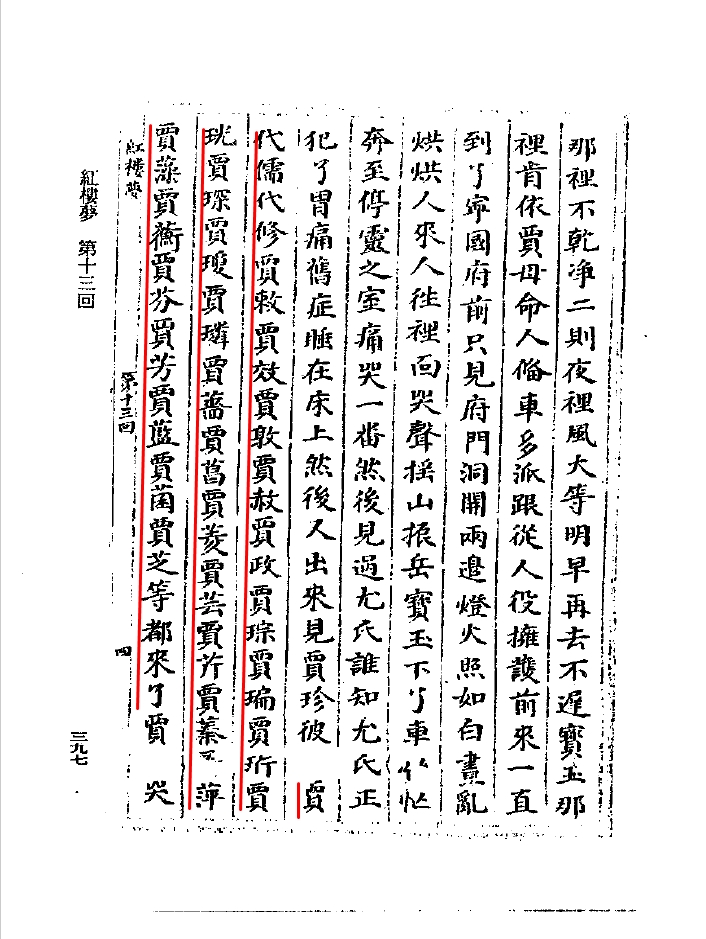 那裡不乾净二則夜裡風大等明早再去不遲寳玉那
裡肯依賈母命人俻車多派跟從人役擁護前來一直
到了寧國府前只見府門洞開兩邉燈火照如白晝亂
烘烘人來人徃裡面哭聲揺山振岳寳玉下了車忙忙
奔至停靈之室痛哭一畨然後見過尤氏誰知尤氏正
犯了胃痛舊症睡在床上然後人出來見賈珍彼 賈
代儒代修賈敕賈效賈敦賈赦賈政賈琮賈㻞賈珩賈
珖賈琛賈瓊賈璘賈薔賈菖賈菱賈芸賈芹賈蓁 萍
賈藻賈蘅賈芬賈芳賈藍賈菌賈芝等都來了賈 哭
紅樓夢
第十三回
四
紅樓夢 第十三回
三九七